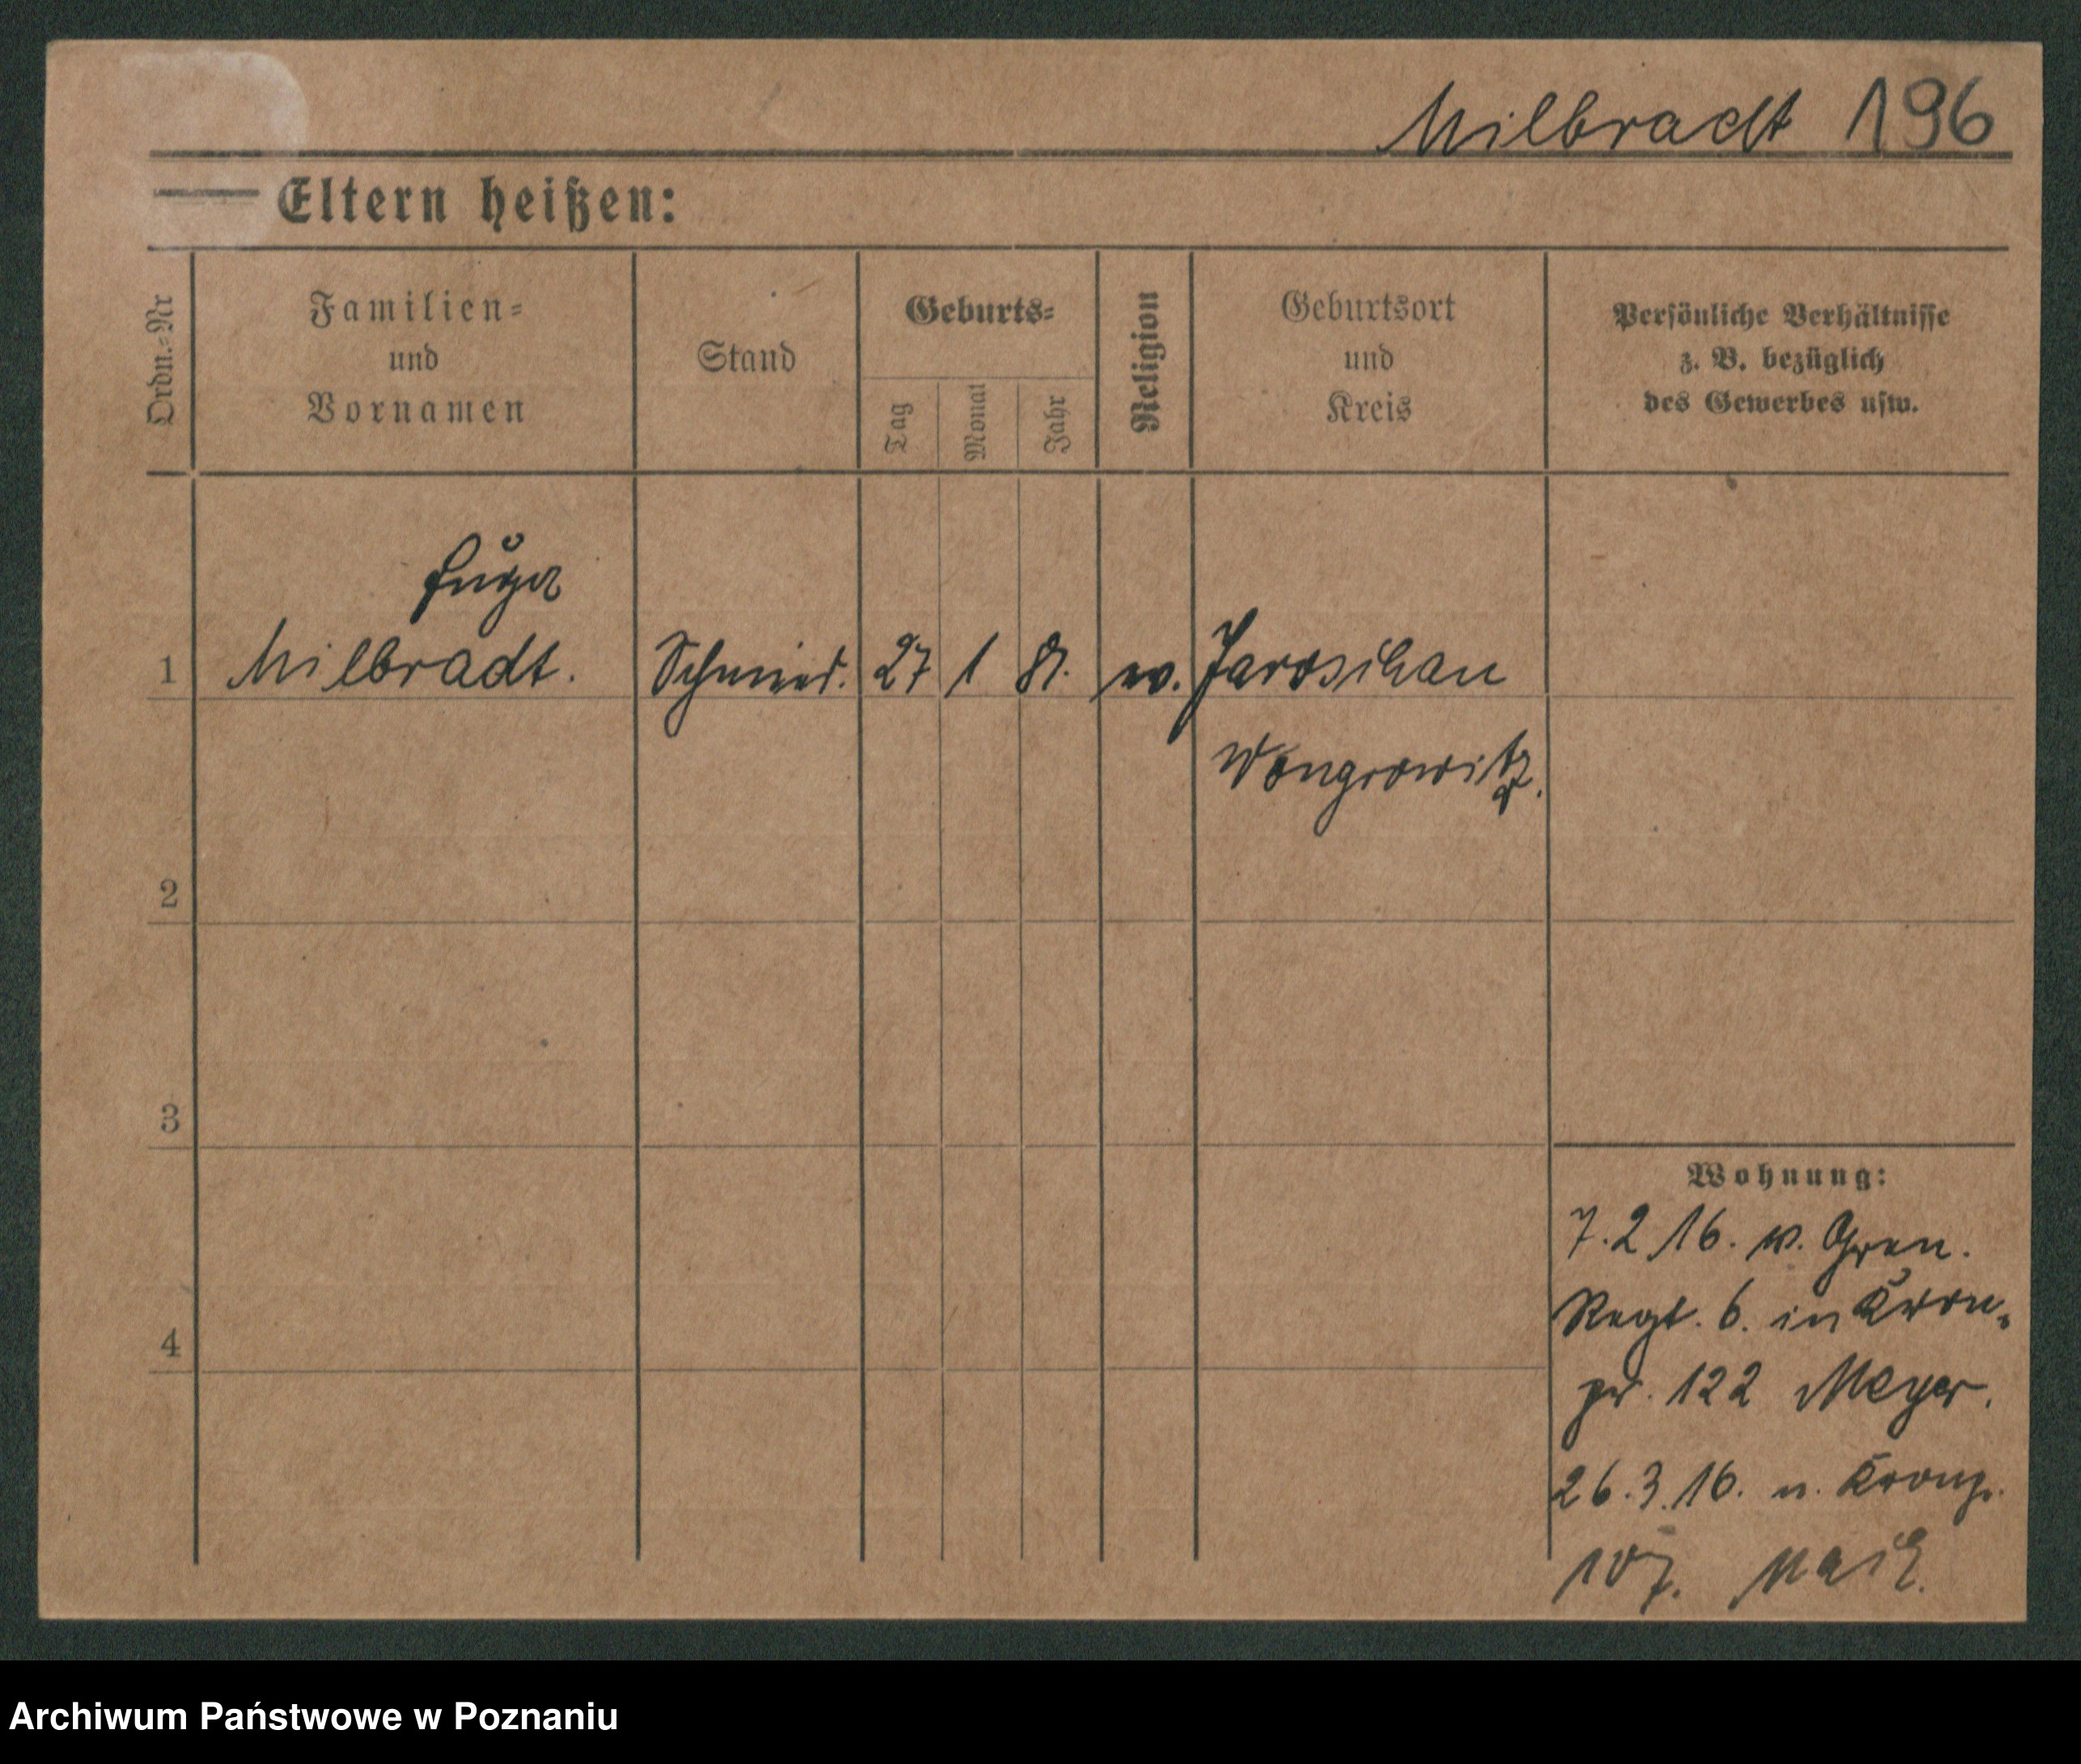 Milbradt 196
Eltern heißen:
Ordn.-Nr
Familien-
und
Vornamen
Stand
Geburts-
Tag
Monat
Jahr
Religion
Geburtsort
und
Kreis
Persönliche Verhältnisse
z. B. bezüglich
des Gewerbes usw.
1 Milbradt. Schmied. 27 1 81. Jaroschau
Wongrowitz.
2
3
4
Wohnung:
7.2.16. v. Gren.
Regt. 6. in Kron-
pr. 122 Meyer.
26.3.16. n. Kronp.
107.
Archiwum Państwowe w Poznaniu